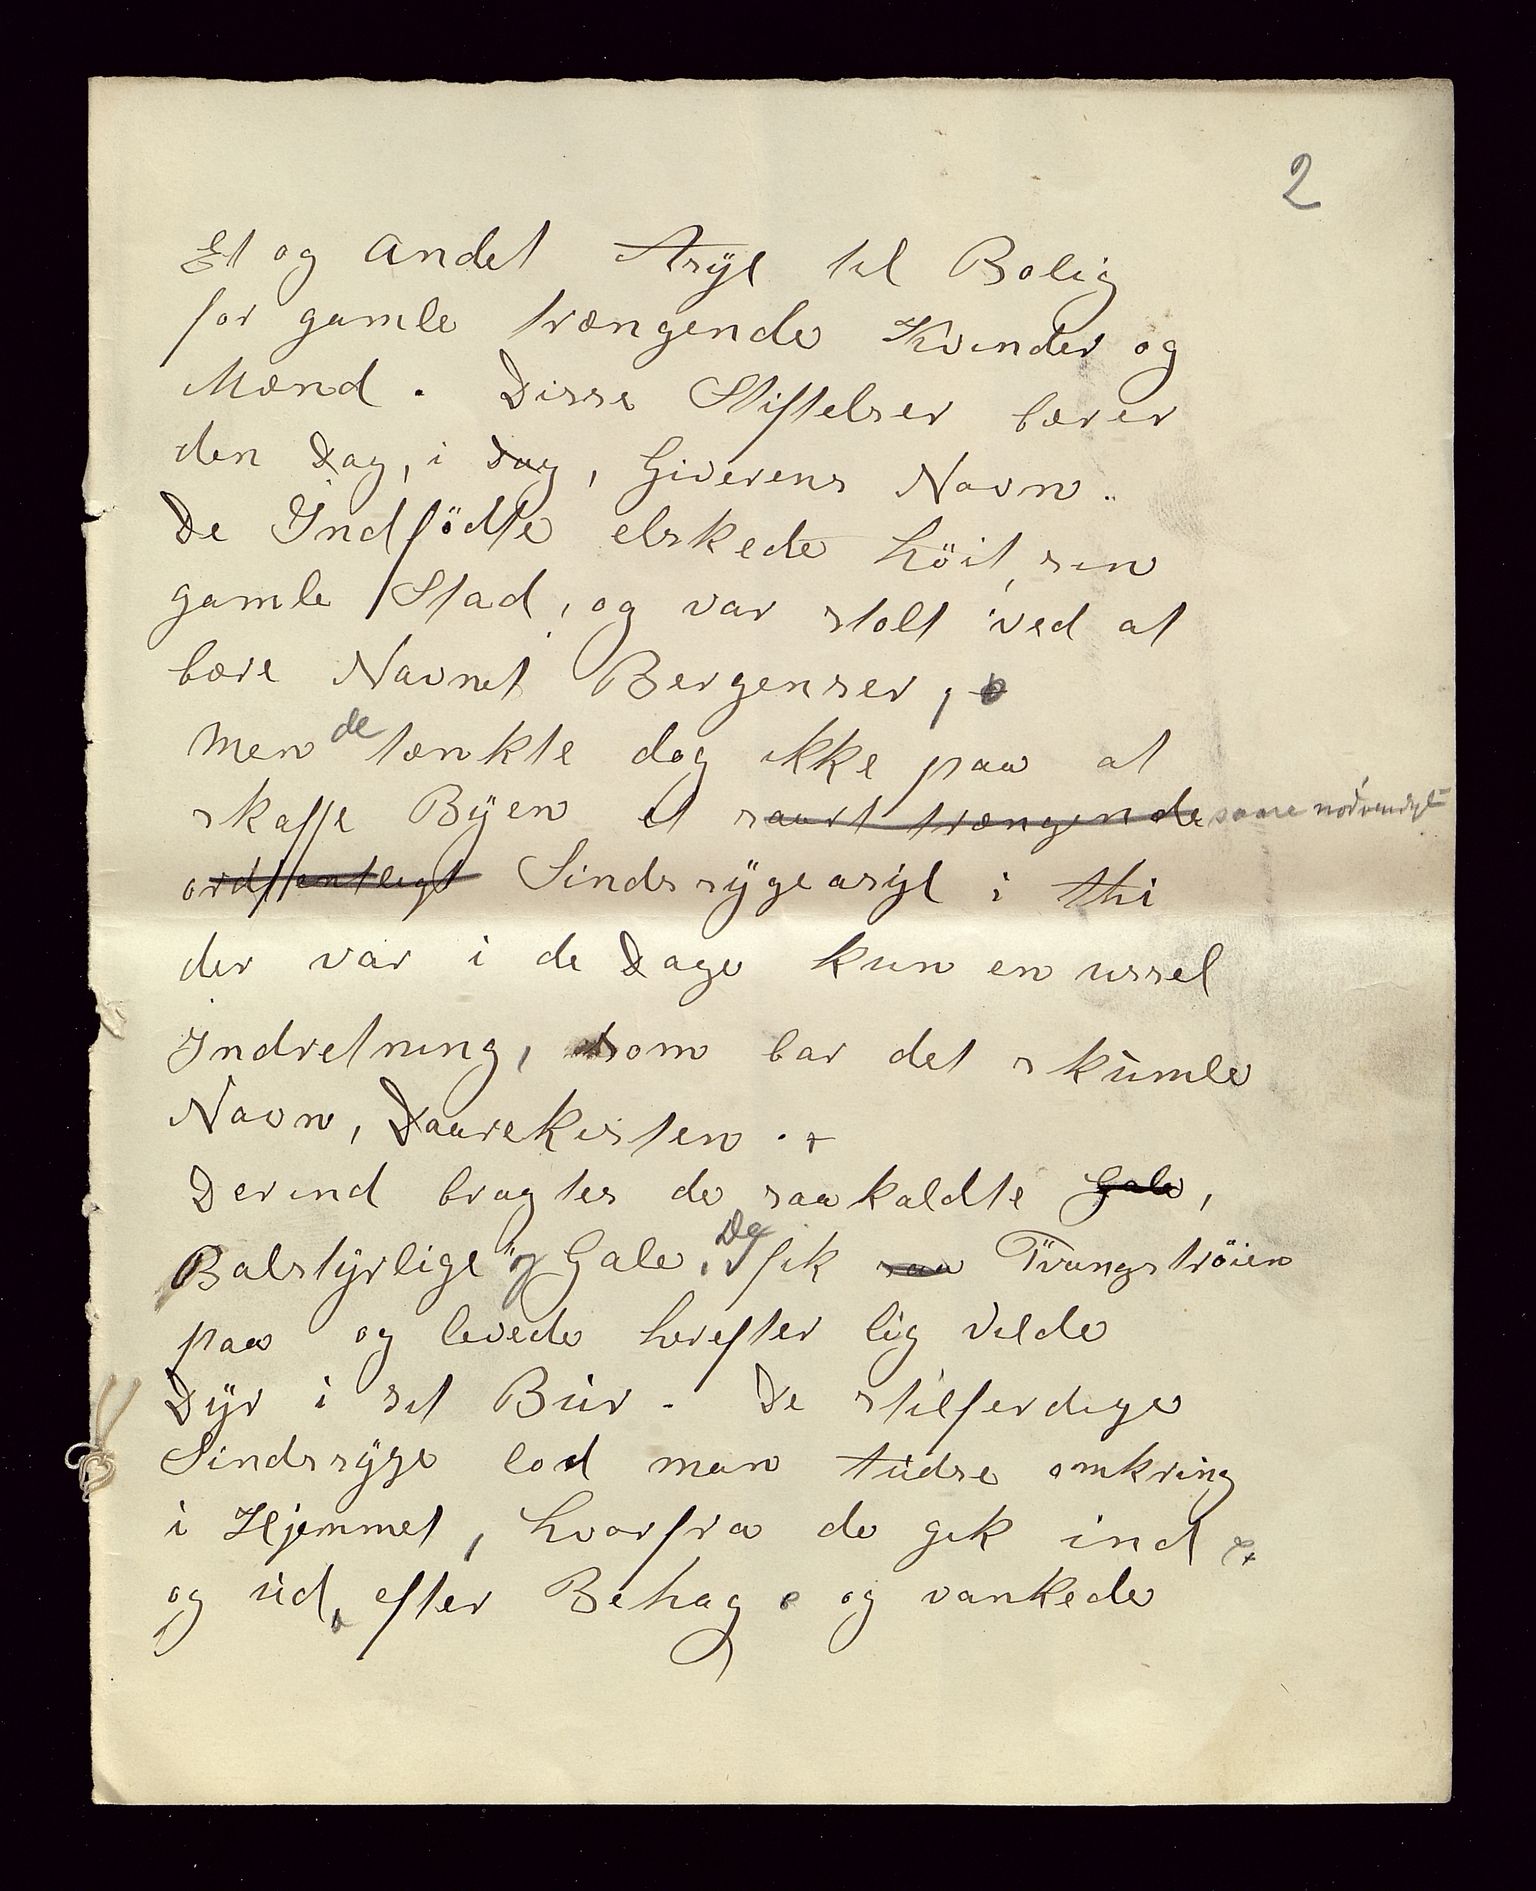 2
Et og andet Asyl til Bolig
for gamle trængende Kvinder og
Mænd. Disse Stiftelser bærer
den Dag, i Dag, Giverens Navn.
De Indfödte elskede höit, sin
gamle Stad, og var stolt ved at
bære Navnet Bergenser,
Men de tænkte dog ikke paa at
skaffe Byen et saart trængende saare nödvendigt
ordentligt Sindssygeasyl; thi
der var i de Dage kun en ussel
Indretning, som bar det skumle
Navn, Daarekisten.
Derind bragtes de saakaldte Gale,
Balstyrlige og Gale. De fik saa Tvangströien
paa og levede herefter lig vilde
Dyr i sit Bur. De stilferdige
Sindssyge lod man tudse omkring
i Hjemmet, hvorfra de gik ind
og ud, efter Behag og vankede